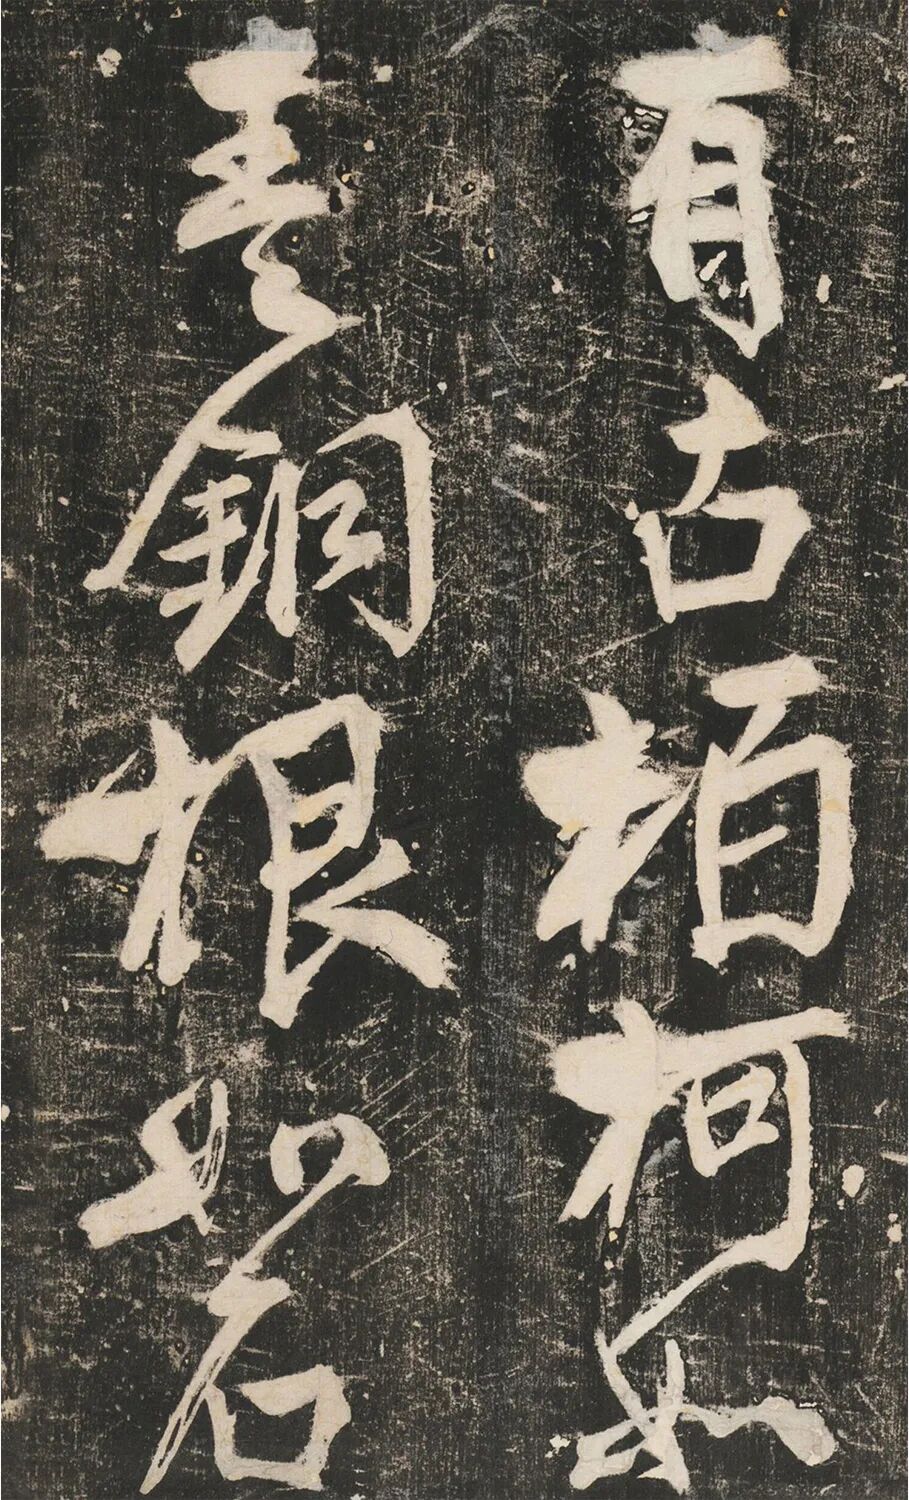 有古柏柯如
青銅根如石